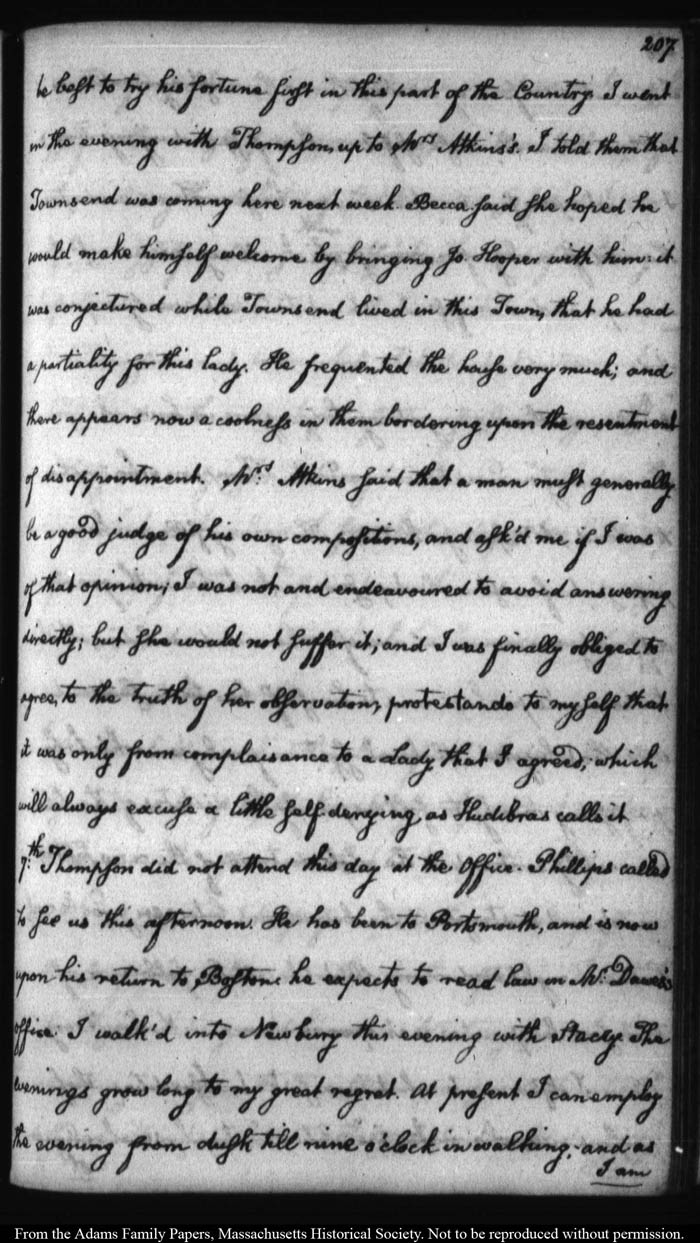 207
be best to try his fortune first in this part of the Country. I went
in the evening with Thompson, up to Mrs Atkins's. I told them that
Townsend was coming here next week. Becca said she hoped he
would make himself welcome by bringing Jo. Hooper with him: it
was conjectured while Townsend lived in this Town, that he had
a partiality for this lady. He frequented the house very much; and
there appears now a coolness in them bordering upon the resentment
of disappointment. Mrs. Atkins said that a man must generally
be a good judge of his own compositions, and ask'd me if I was
of that opinion; I was not and endeavoured to avoid answering
directly; but she would not suffer it; and I was finally obliged to
agree, to the truth of her observation, protestando to myself that
it was only from complaisance to a Lady that I agreed, which
will always excuse a little self-denying, as Hudibras calls it
7:th Thompson did not attend this day at the Office. Phillips called
to see us this afternoon. He has been to Portsmouth, and is now
upon his return to Boston: he expects to read law in Mr. Dawes's
office. I walk'd into Newbury this evening with Stacey. The
evenings grow long to my great regret. At present I can employ
the evening from dusk till nine o'clock in walking; and as
I am
From the Adams Family Papers, Massachusetts Historical Society. Not to be reproduced without permission.